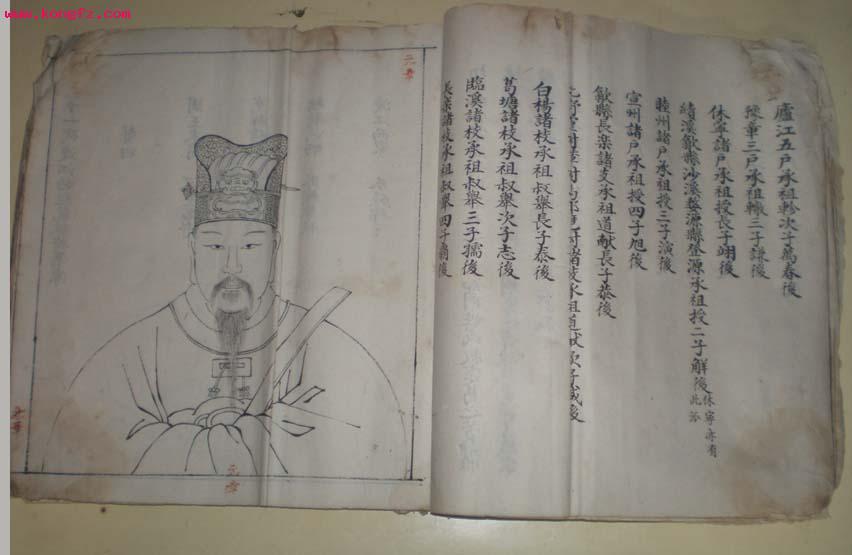 www.kongfz.com
廬江五戶承祖軫次子萬春後
豫章三戶承祖轍三子謙後
休寧諸戶承祖授長子翊後
績溪歙縣沙溪婺源縣登源承祖授二子解後休寧亦有此派
睦州諸戶承祖授三子演後
宣州諸戶承祖授四子旭後
歙縣長樂諸支承祖道献長子恭後
諸枝承祖道献次子成後
白楊諸枝承祖叔舉長子泰後
葛塘諸枝承祖叔舉次子志後
臨溪諸枝承祖叔舉三子孺後
長樂諸枝承祖叔舉四子後